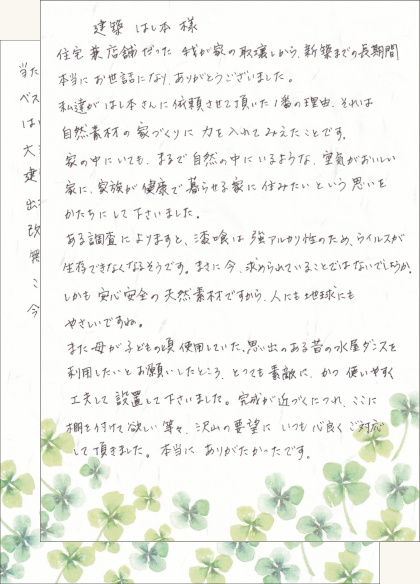 建築 はし本 様
住宅兼店舗だった 我が家の取壊しから、新築までの長期間
本当に お世話になり、ありがとうございました。
私達が はし本さんに依頼させて頂いた1番の理由、それは
自然素材の 家づくりに 力を入れてみえたことです。
家の中にいても、まるで自然の中にいるような、空気がおいしい
家に、家族が 健康で暮らせる家に 住みたいという思いを
かたちにして下さいました。
ある調査によりますと、漆喰は 強アルカリ性のため、ウイルスが
生存できなくなるそうです。まさに今、求められていることではないでしょうか。
しかも 安心安全の天然素材ですから、人にも地球にも
やさしいですね。
また母が 子どもの頃 使用していた、思い出のある昔の水屋ダンスを
利用したいとお願いしたところ、とっても素敵に、かつ 使いやすく
工夫して 設置して下さいました。完成が近づくにつれ、ここに
棚を付けて欲しい 等々、沢山の要望に いつも心良くご対応
して頂きました。本当に ありがたかったです。
当た
ベス
は
大
建
出
改
無
こ
今